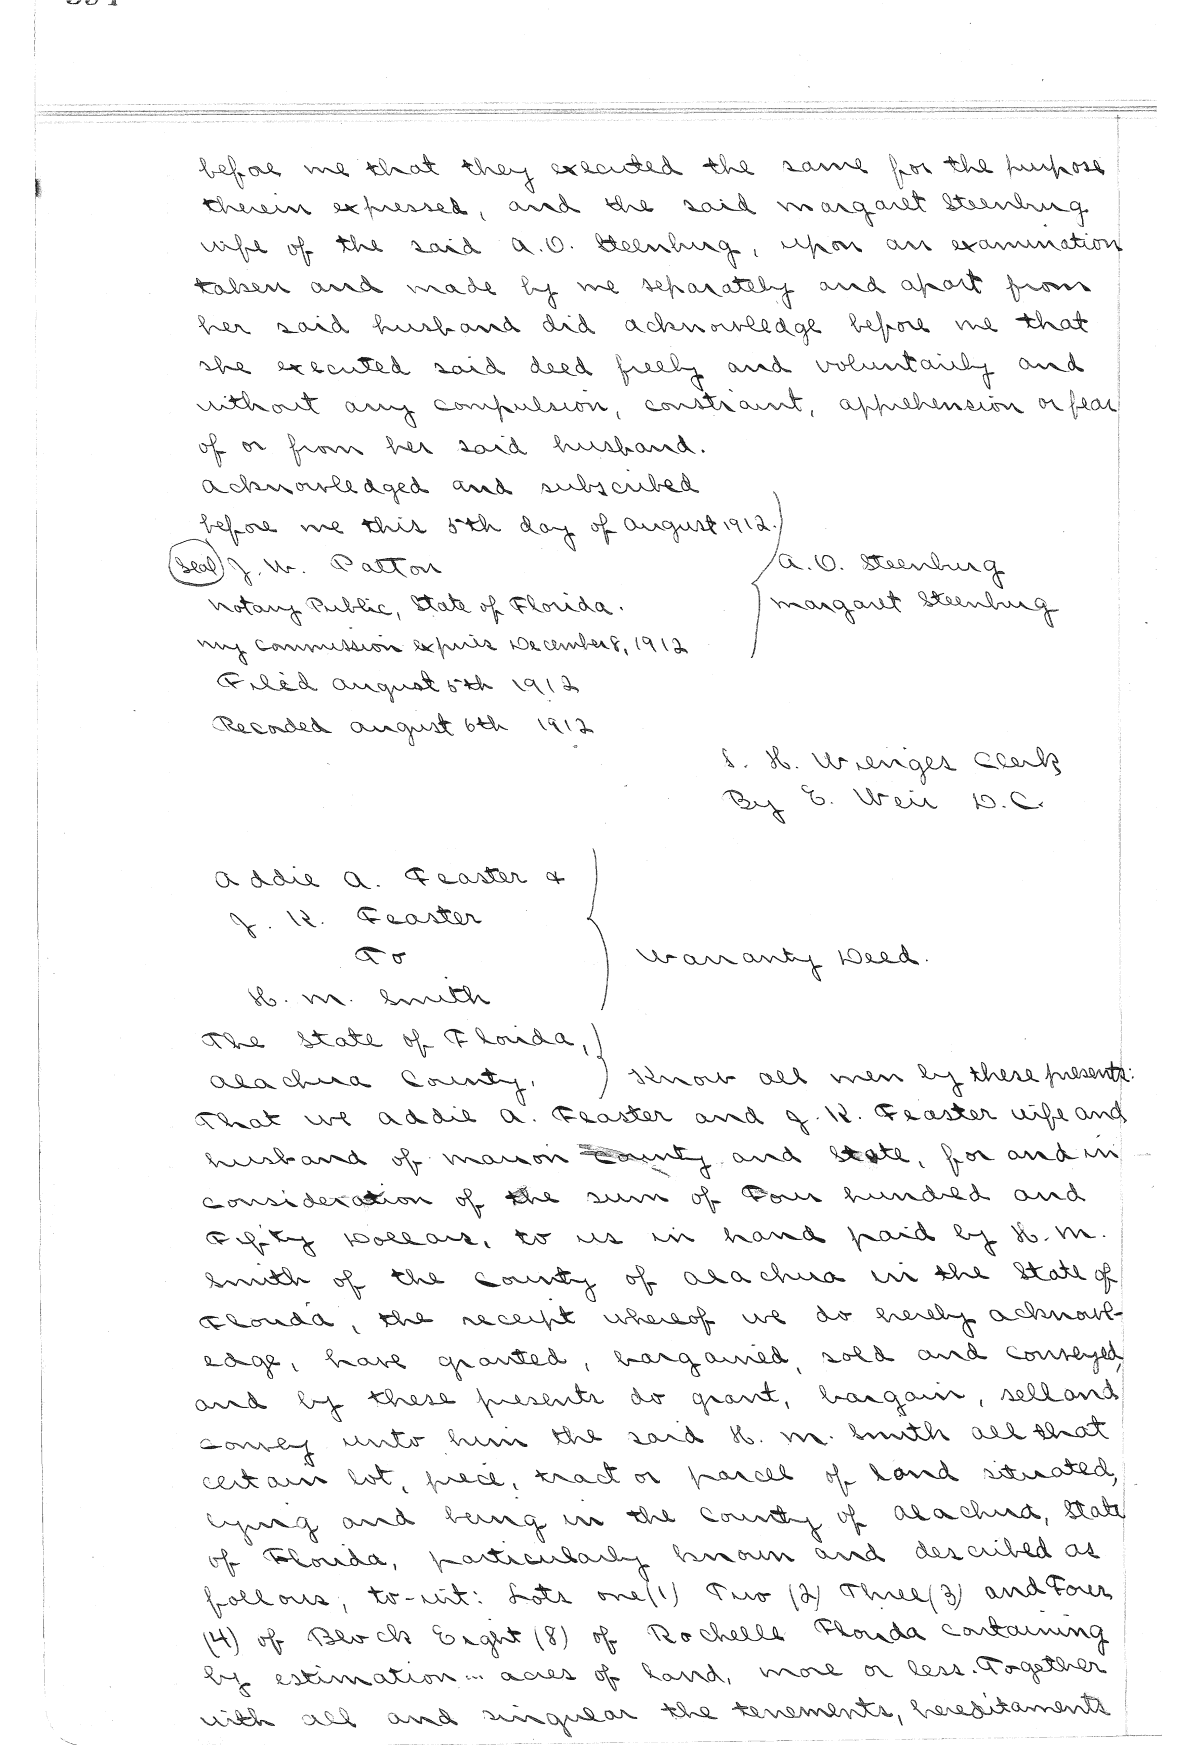 before me that they executed the same for the purpose
therein expressed, and the said Margaret Steenburg
wife of the said A.O. Steenburg, upon an examination
taken and made by me separately and apart from
her said husband did acknowledge before me that
she executed said deed freely and voluntarily and
without any compulsion, constraint, apprehension or fear
of or from her said husband.
Acknowledged and subscribed
before me this 5th day of August 1912.
(Seal) J. W. Patton
A. O. Steenburg
Notary Public, State of Florida.
Margaret Steenburg
My Commission expires December 8, 1912
Filed August 5th 1912
Recorded August 6th 1912
S. H. Wienges Clerk
By E. Weir D.C.
Addie A. Feaster &
J. K. Feaster
To
Warranty Deed.
H. M. Smith
The State of Florida,
Alachua County.
Know all men by these presents:
That we Addie A. Feaster and J. K. Feaster wife and
husband of Marion County and State, for and in
consideration of the sum of Four hundred and
Fifty Dollars, to us in hand paid by H. M.
Smith of the County of Alachua in the State of
Florida, the receipt whereof we do hereby acknowl-
edge, have granted, bargained, sold and conveyed,
and by these presents do grant, bargain, sell and
convey unto him the said H. M. Smith all that
certain lot, piece, tract or parcel of land situated,
lying and being in the County of Alachua, State
of Florida, particularly known and described as
follows, to-wit: Lots one (1) Two (2) Three (3) and Four
(4) of Block Eight (8) of Rochelle Florida containing
by estimation ... acres of land, more or less. Together
with all and singular the tenements, hereditaments